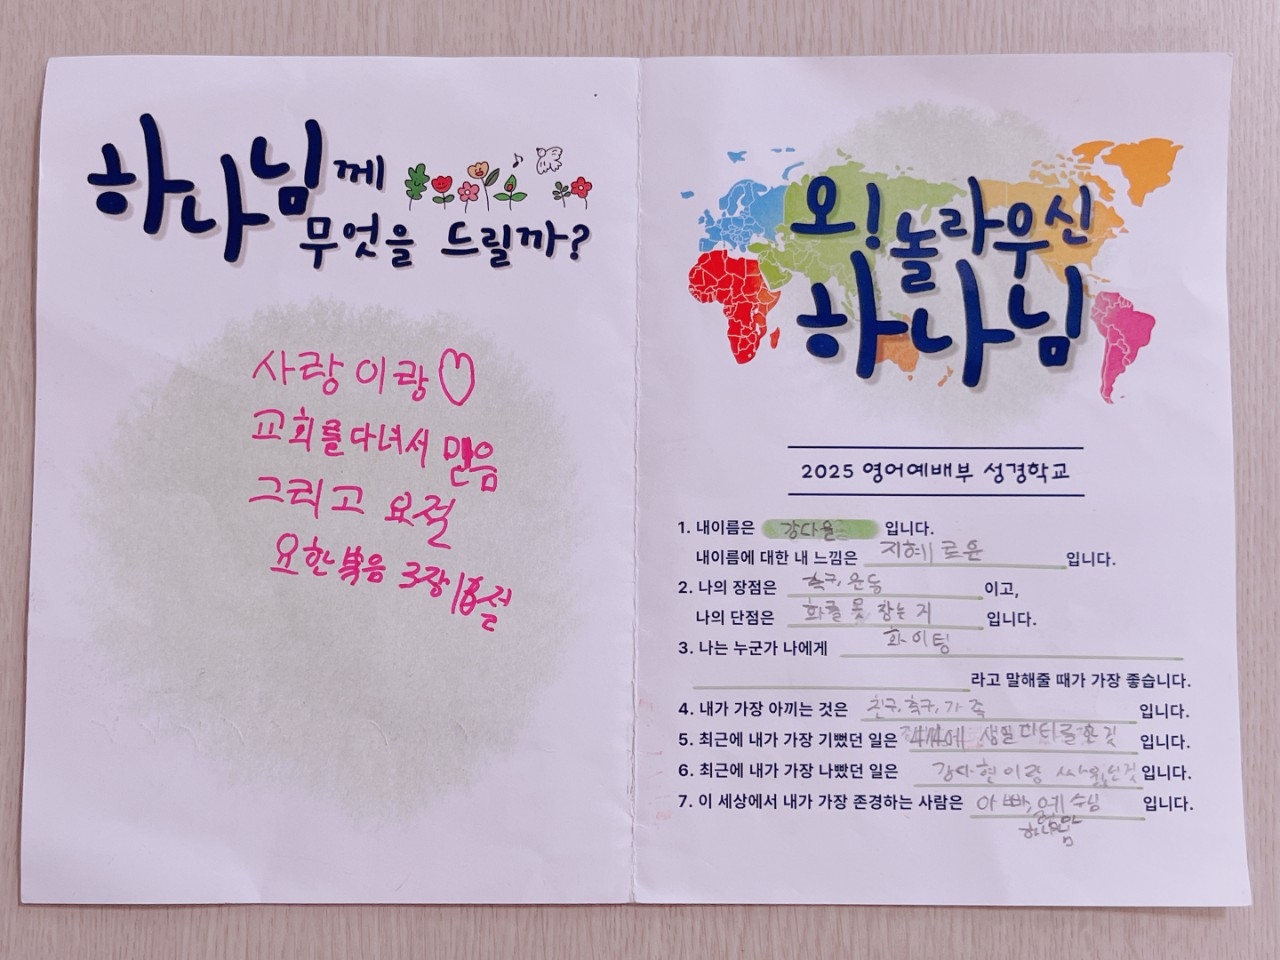 하나님께
무엇을 드릴까?
사랑이랑♡
교회를다녀서 믿음
그리고 요절
요한복음 3장16절
오! 놀라우신
하나님
2025 영어예배부 성경학교
1. 내이름은 강다율 입니다.
내이름에 대한 내 느낌은 지혜로운 입니다.
2. 나의 장점은 축구, 운동 이고,
나의 단점은 화를 못 참는 지 입니다.
3. 나는 누군가 나에게 화이팅
라고 말해줄 때가 가장 좋습니다.
4. 내가 가장 아끼는 것은 친구, 축구, 가족 입니다.
5. 최근에 내가 가장 기뻤던 일은 생일파티를 한 것 입니다.
6. 최근에 내가 가장 나빴던 일은 강다현이랑 싸웠던것 입니다.
7. 이 세상에서 내가 가장 존경하는 사람은 아빠, 예수님 입니다.
하나님